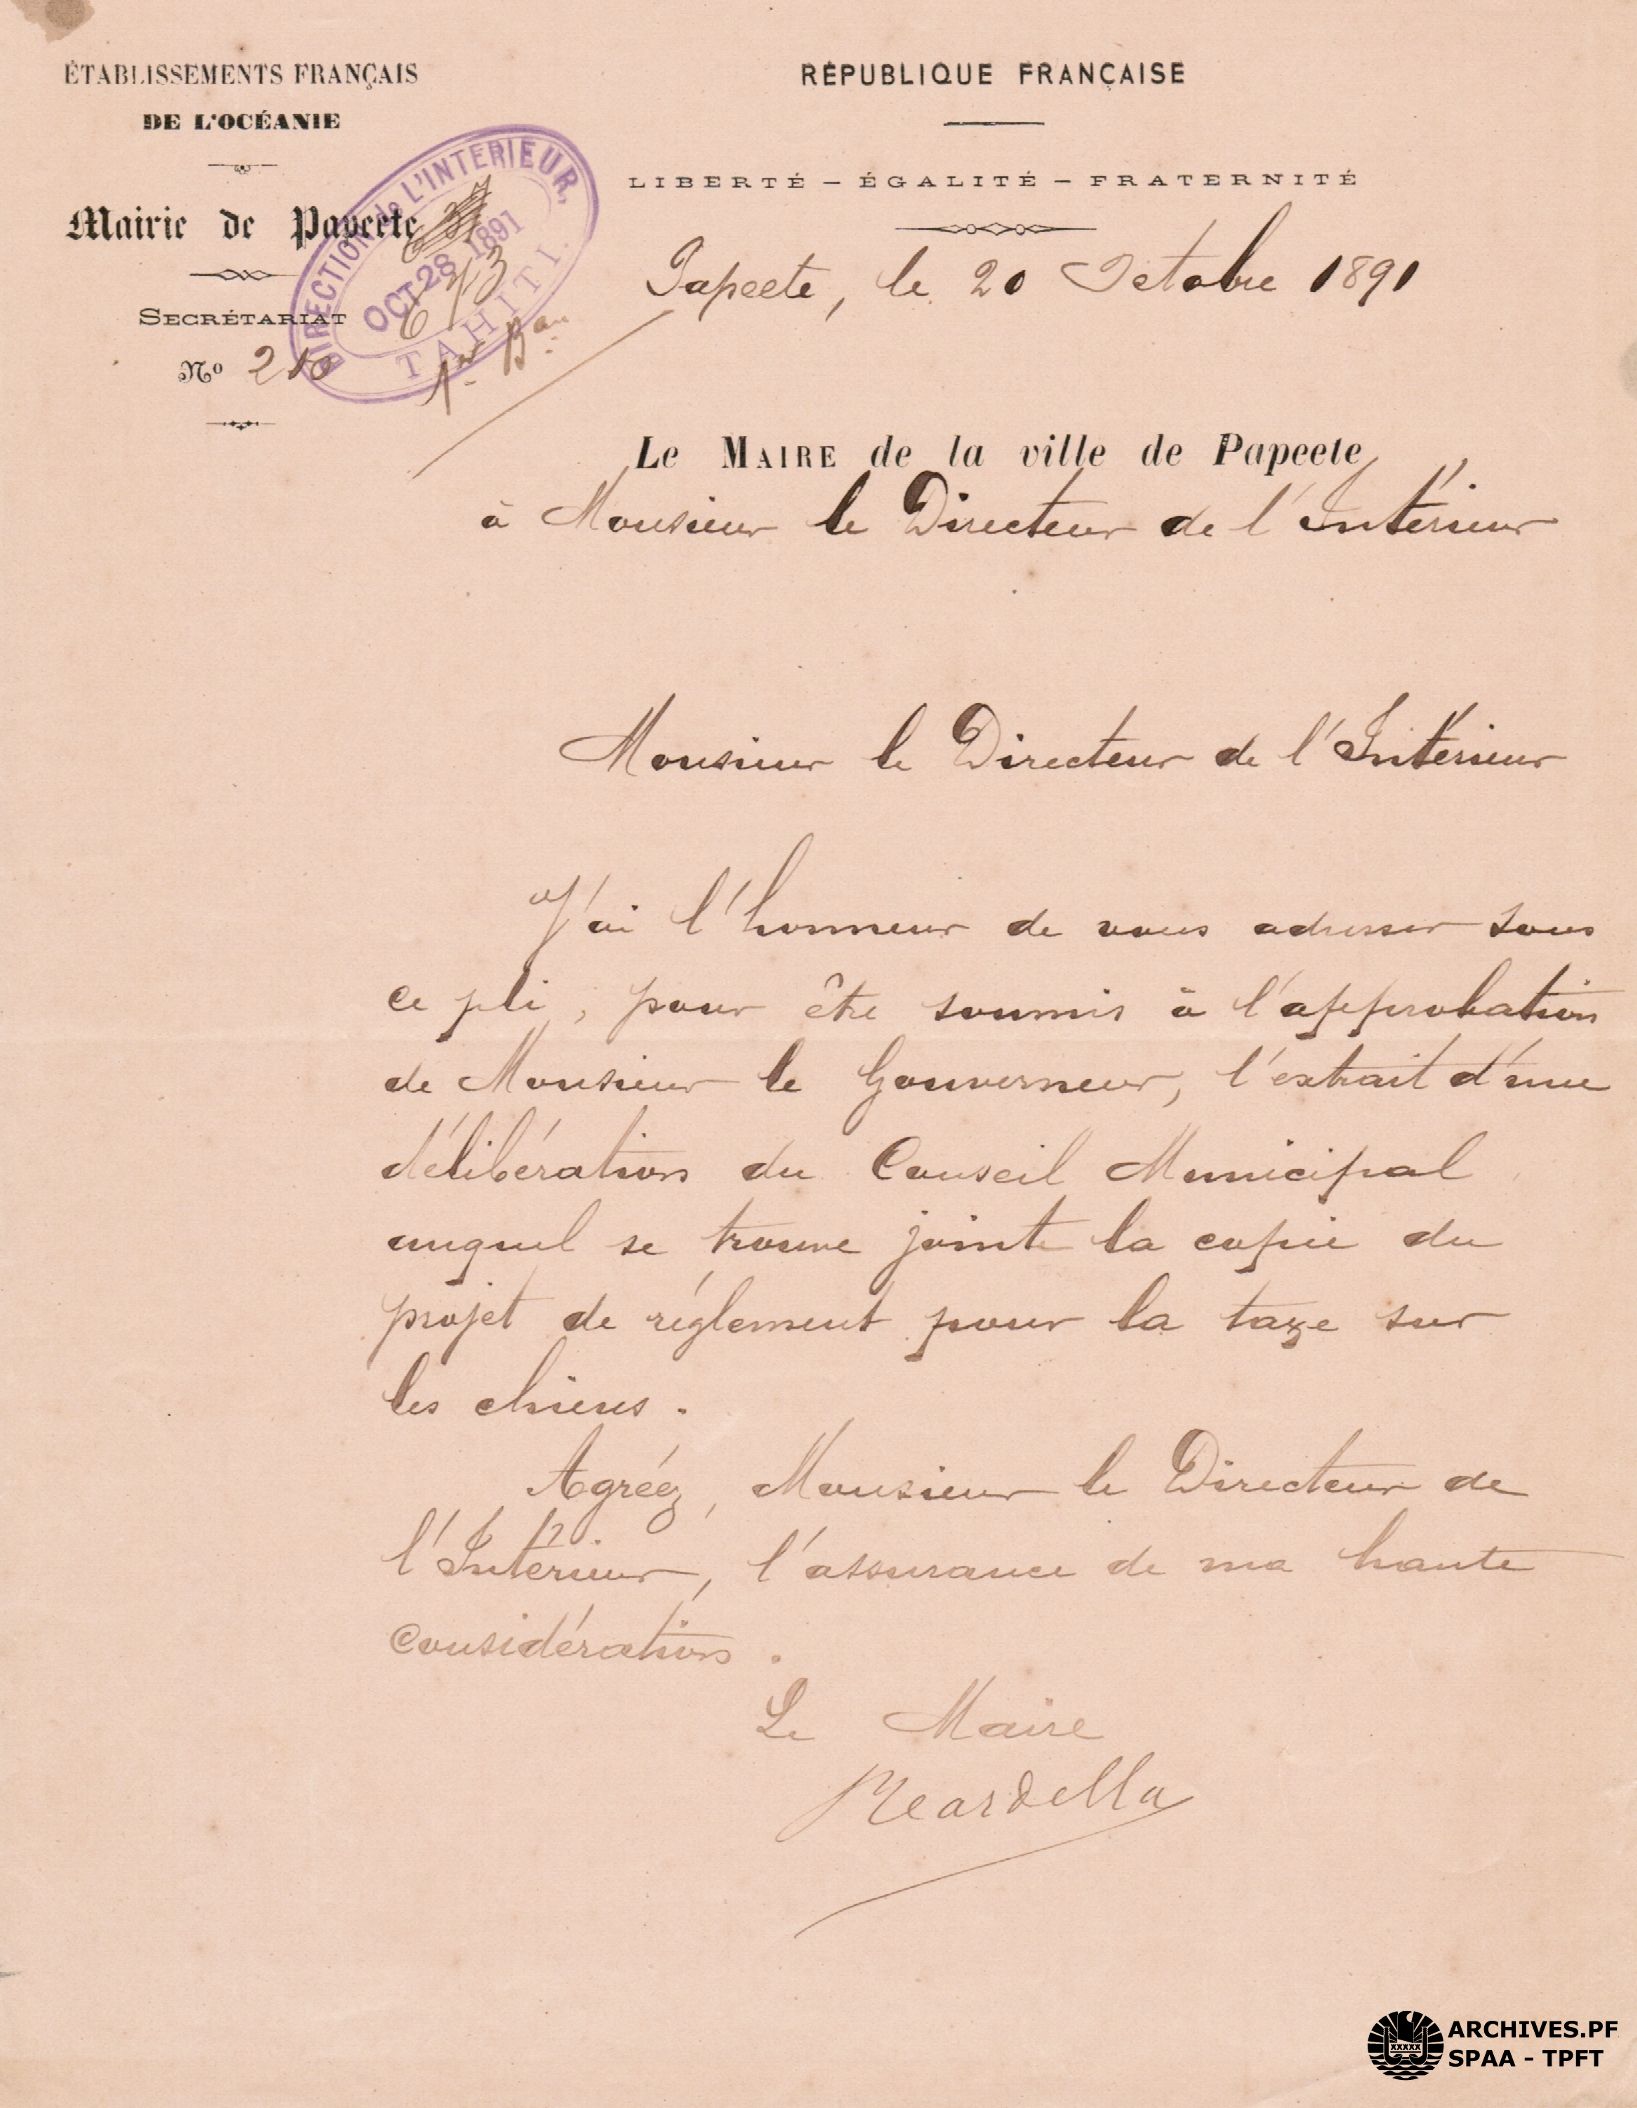 ÉTABLISSEMENTS FRANÇAIS
DE L'OCÉANIE
Mairie de Papeete
SECRÉTARIAT
No 210
DIRECTION de L'INTERIEUR,
OCT 28 1891
TAHITI.
643
1er Bau
RÉPUBLIQUE FRANÇAISE
LIBERTÉ – ÉGALITÉ – FRATERNITÉ
Papeete, le 20 Octobre 1891
Le MAIRE de la ville de Papeete,
à Monsieur le Directeur de l'Intérieur
Monsieur le Directeur de l'Intérieur
J'ai l'honneur de vous adresser sous
ce pli, pour être soumis à l'approbation
de Monsieur le Gouverneur, l'extrait d'une
délibération du Conseil Municipal
auquel se trouve jointe la copie du
projet de réglement pour la taxe sur
les chiens.
Agréez, Monsieur le Directeur de
l'Intérieur, l'assurance de ma haute
considération.
Le Maire
Cardella
ARCHIVES.PF
SPAA - TPFT